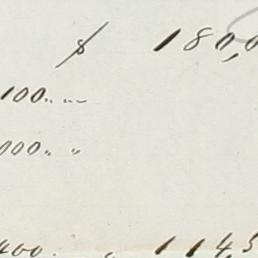 $ 180,0
100.. ..
000.. "
400. " 114,5